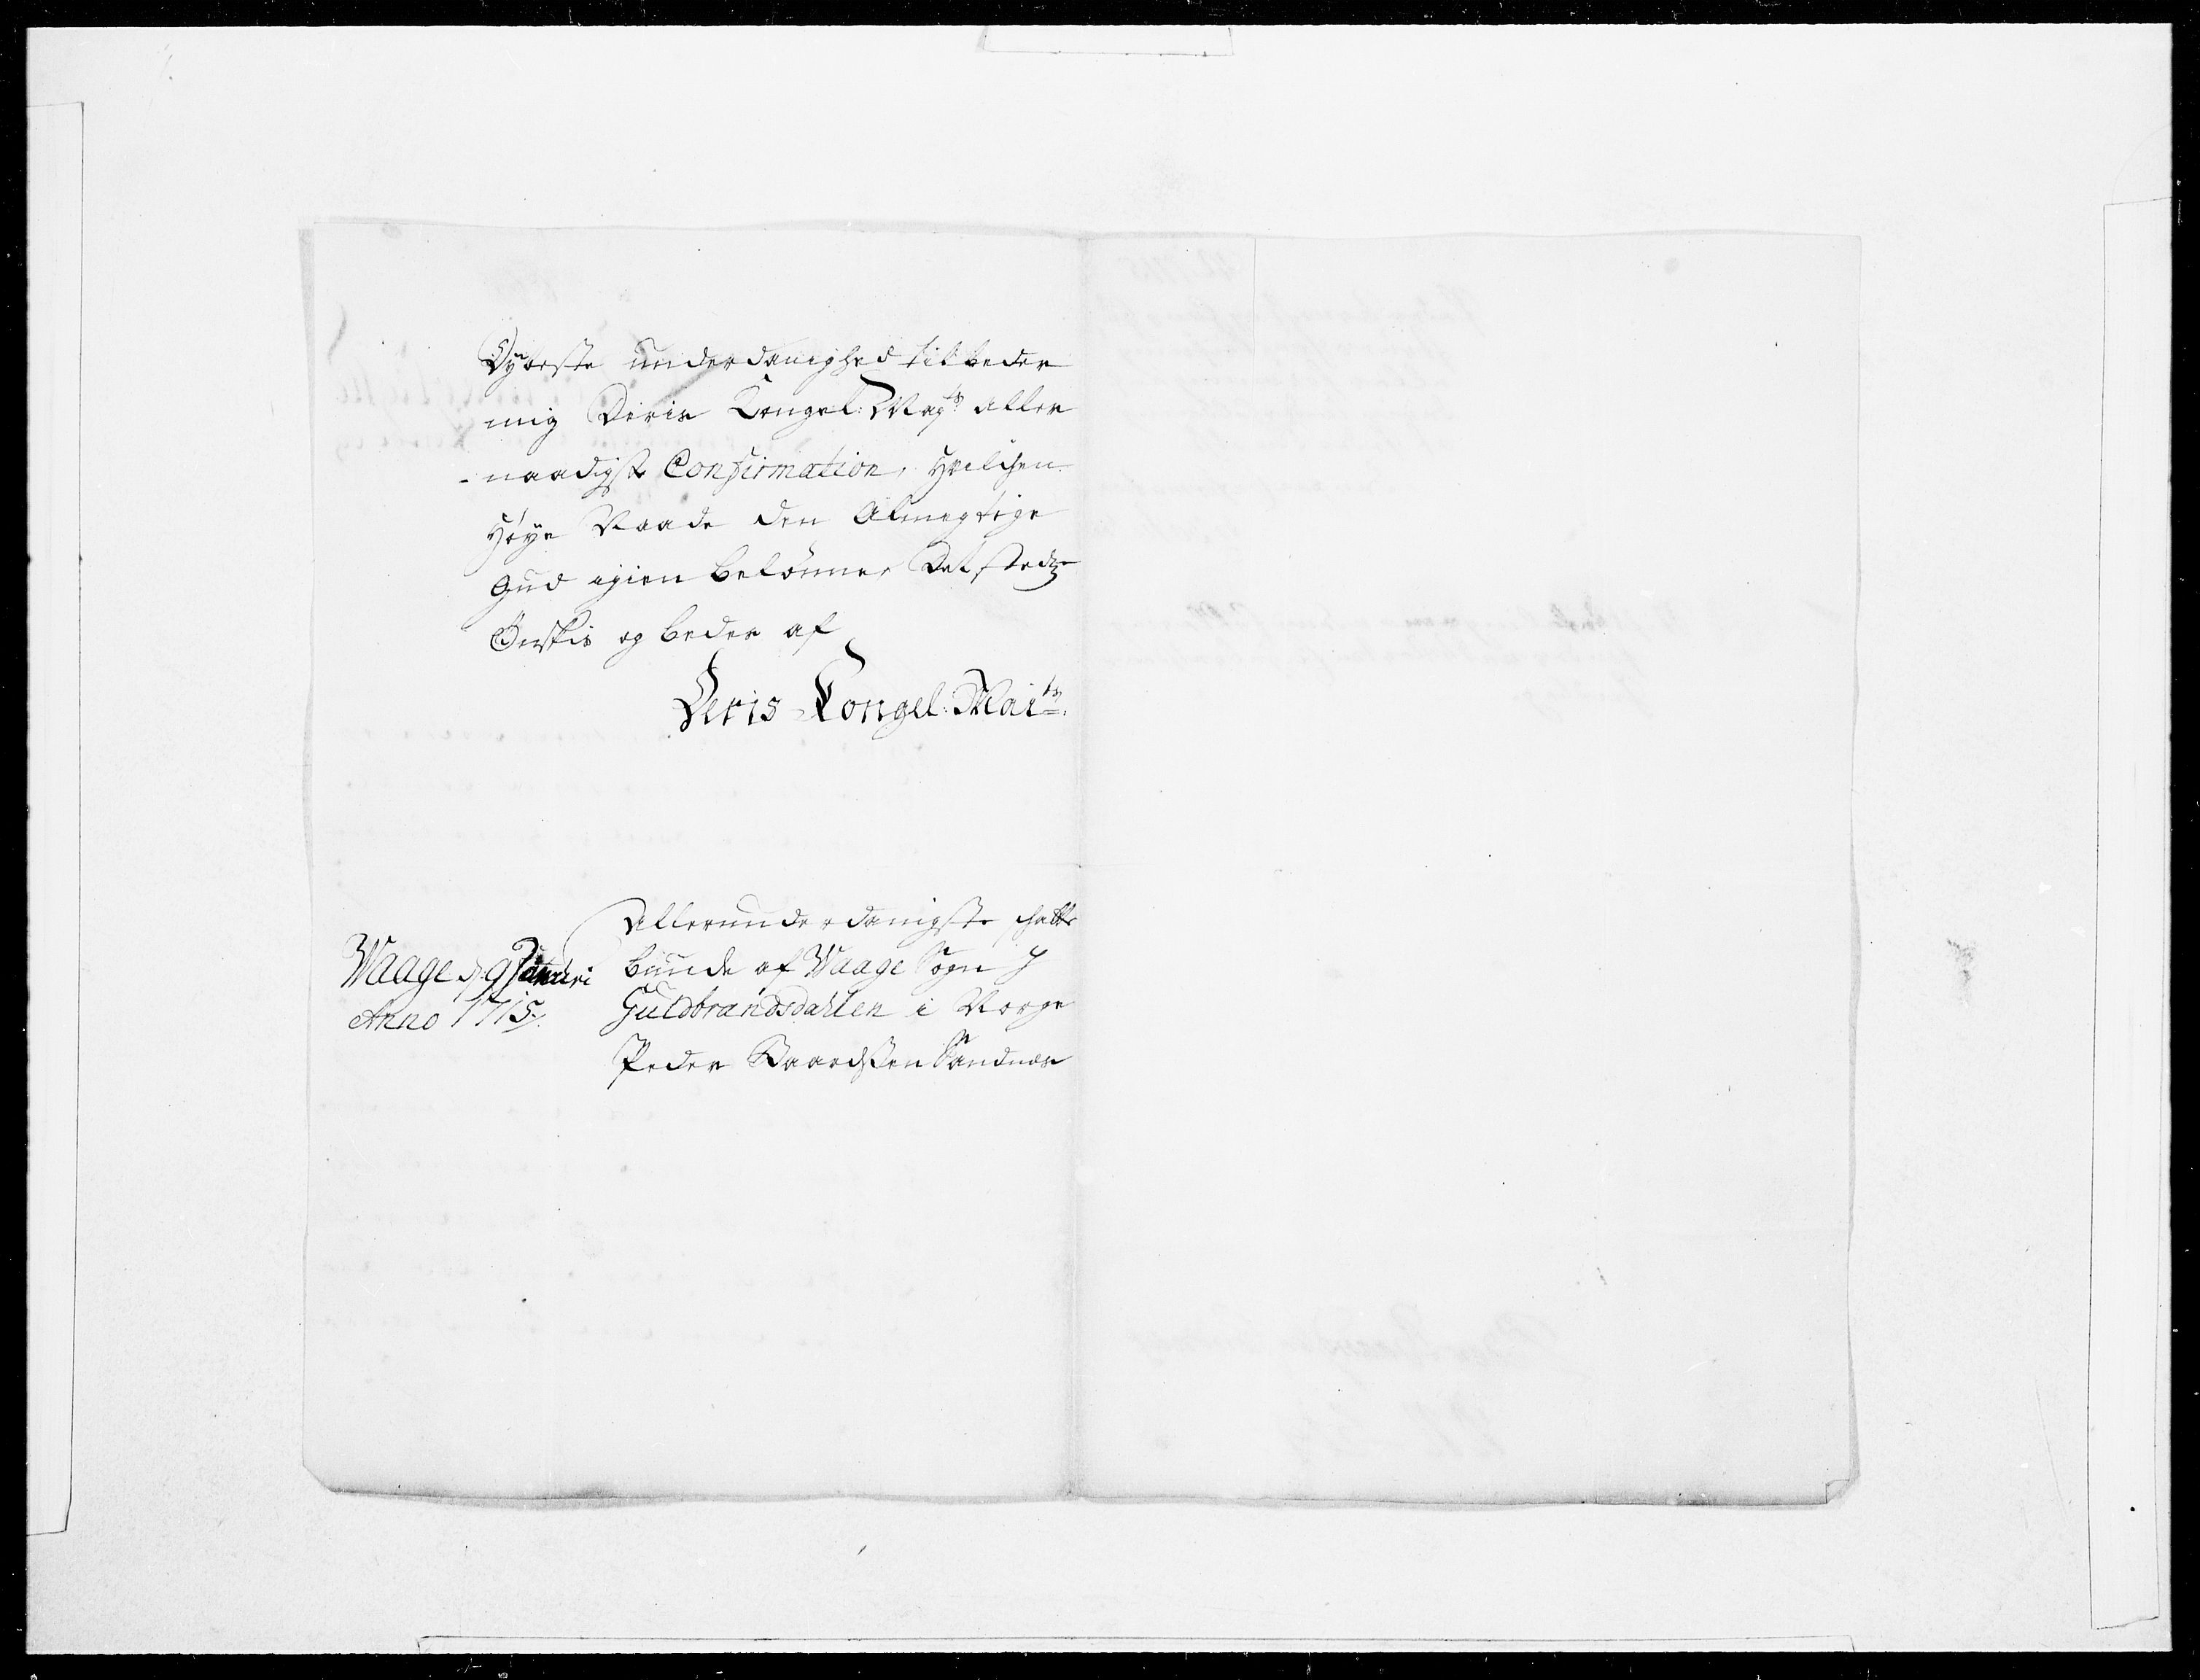 Dybeste underdanighed tilbeder
mig Deris Kongel: May.ts aller
- naadigste Confirmation, Hvilchen
Høye Naade den Almegtige
Gud igien belønner Det stedtze
Ønskis og beder af
Deris Kongel: Mai.ts
Allerunderdanigste schatte
bunde af Waage Sogn J
Guldbrandsdahlen i Norge
Peder Baardsen Sandnes
Waage d. 9 Januari
Anno 1715.